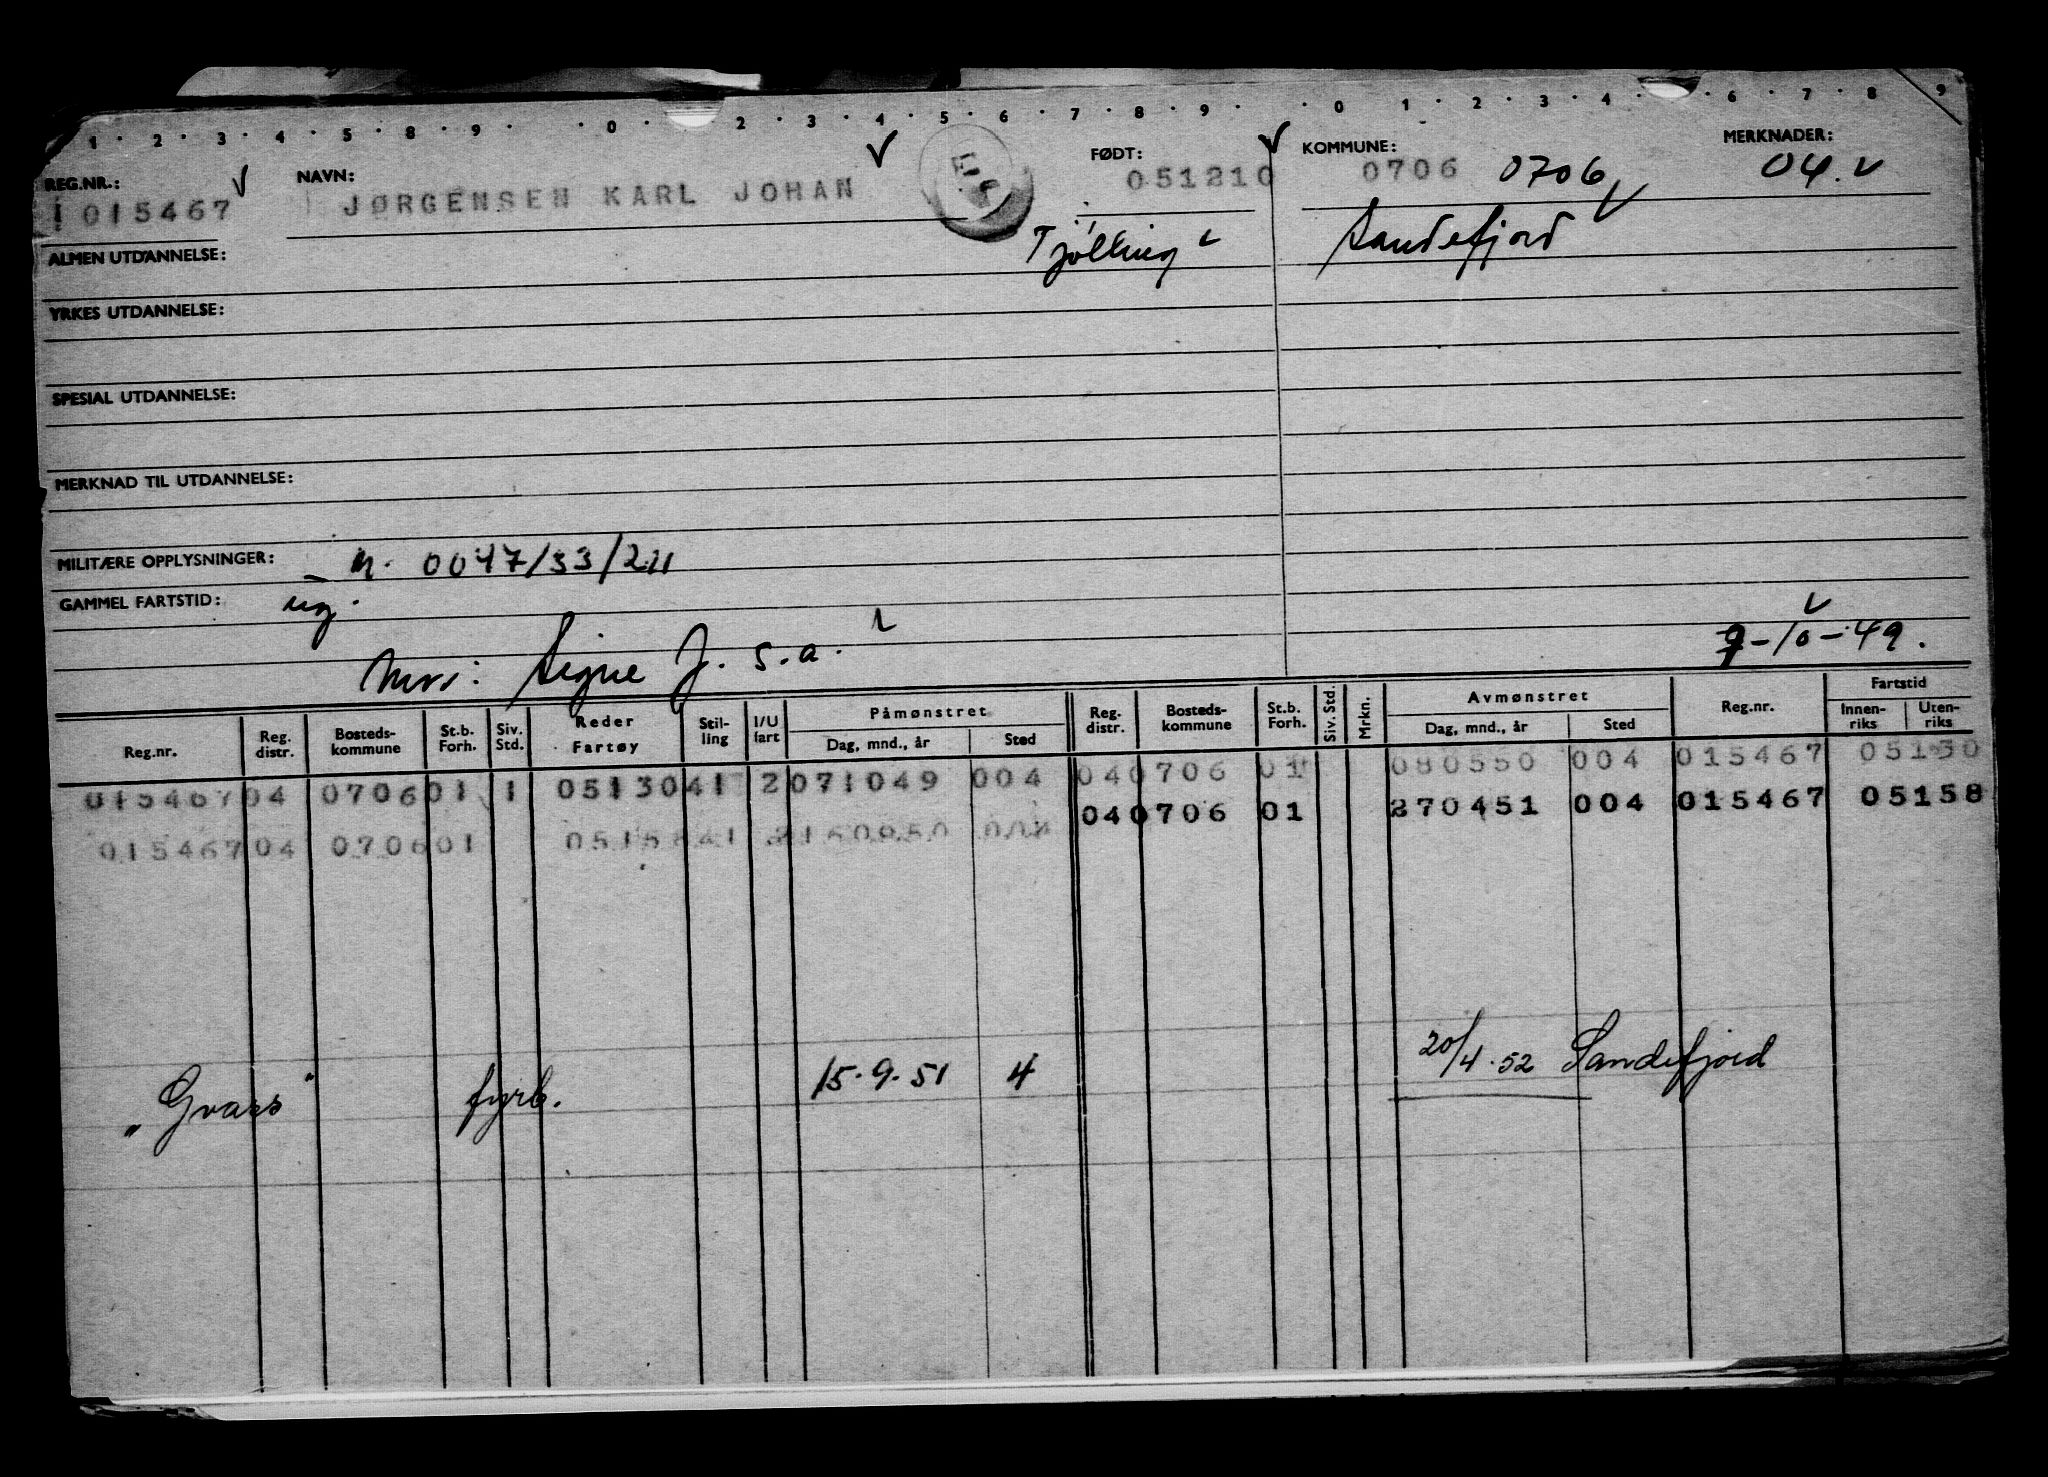 1 · 2 · 3 · 4 · 5 · 8 · 9 · · 0 · 2 · 3 · 4 · 5 · 6 · 7 · 8 · 9 · · 0 · 1 · 2 · 3 · 4 · · 6 · 7 · 8 · 9
REG.NR.: NAVN: FØDT: KOMMUNE: MERKNADER:
015467 JØRGENSEN KARL JOHAN 051210 0706 0706 04.
Tjølling Sandefjord
ALMEN UTDANNELSE:
YRKES UTDANNELSE:
SPESIAL UTDANNELSE:
MERKNAD TIL UTDANNELSE:
MILITÆRE OPPLYSNINGER: n. 0047/33/211
GAMMEL FARTSTID: ug.
Mor: Signe J. s.a. 7-10-49.
Reg.nr. Reg. distr. Bosteds-kommune St.b. Forh. Siv. Std. Reder Fartøy Stil-ling I/U fart Påmønstret Dag, mnd., år Sted Reg. distr. Bosteds-kommune St.b. Forh. Siv. Std. Mrkn. Avmønstret Dag, mnd., år Sted Reg.nr. Fartstid Innen-riks Uten-riks
015467 04 0706 01 1 05130 41 2 071049 004 04 0706 01 080550 004 015467 05130
015467 04 0706 01 05158 41 2 150950 004 04 0706 01 270451 004 015467 05158
"Gvars" fyrb. 15.9.51 4 20/4.52 Sandefjord